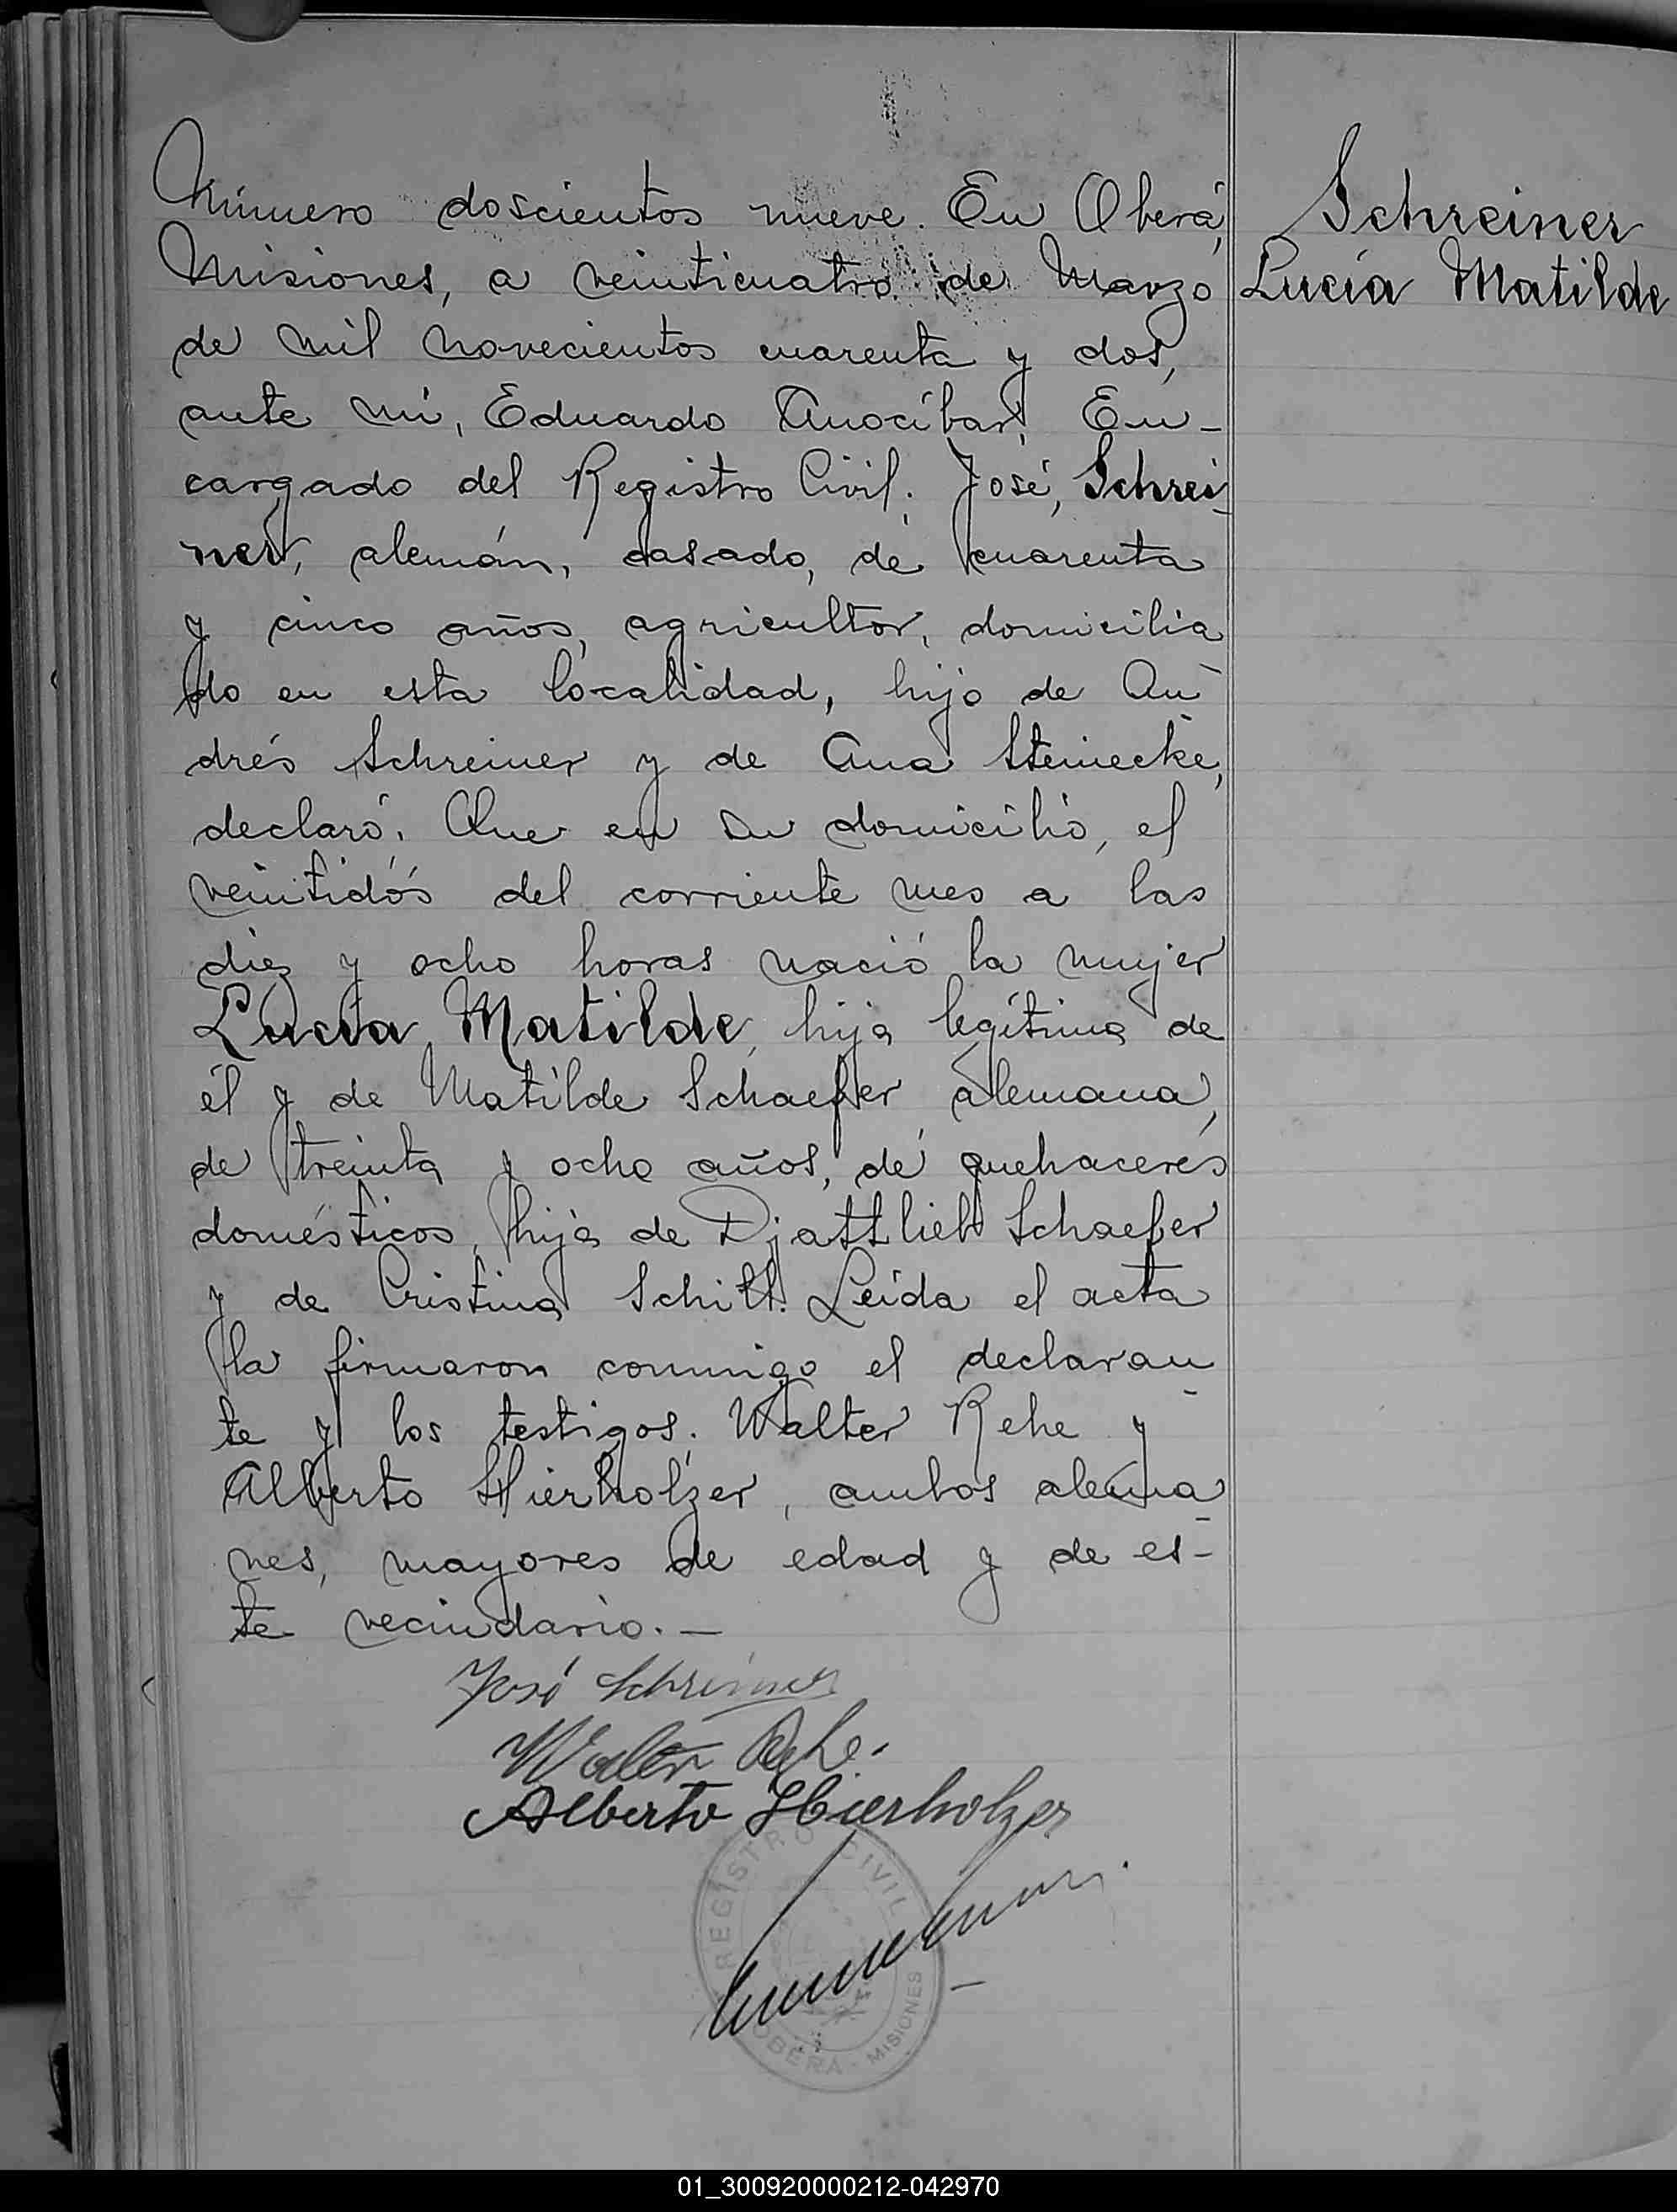 Número doscientos nueve. En Oberá,
Misiones, a veinticuatro de Marzo
de mil novecientos cuarenta y dos,
ante mí, Eduardo Anocíbar, En-
cargado del Registro Civil. José, Schrei-
ner, alemán, casado, de cuarenta
y cinco años, agricultor, domicilia
do en esta localidad, hijo de An-
drés Schreiner y de Ana Steinecke,
declaró. Que en su domicilio, el
veintidós del corriente mes a las
diez y ocho horas nació la mujer
Lucía Matilde, hija legítima de
él y de Matilde Schaefer, alemana,
de treinta y ocho años, de quehaceres
domésticos, hija de Djattlieb Schaefer
y de Cristina Schill. Leída el acta
la firmaron conmigo el declaran-
te y los testigos: Walter Rehe y
Alberto Hierholzer, ambos alema-
nes, mayores de edad y de es-
te vecindario.—
Schreiner
Lucía Matilde
José Schreiner
Walter Rehe.
Alberto Hierholzer
REGISTRO CIVIL
OBERÁ - MISIONES
01_300920000212-042970